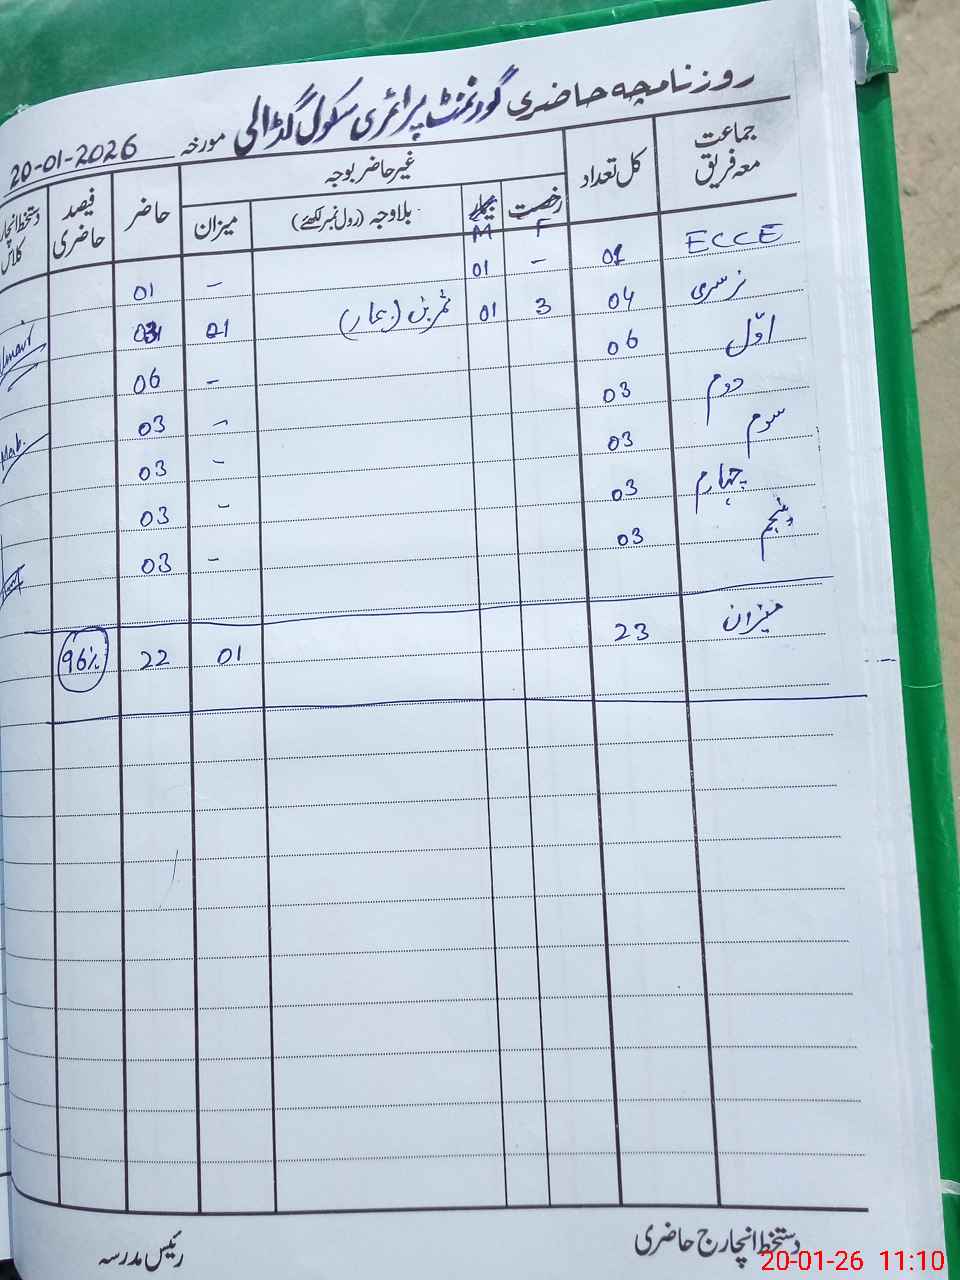 روزنامچہ حاضری گورنمنٹ پرائمری سکول گڈالی مورخہ 20-01-2026
جماعت معہ فریق کل تعداد غیر حاضر بوجہ حاضر فیصد حاضری دستخط انچارج کلاس
رخصت بیمار بلاوجہ (رول نمبر لکھئے) میزان
F M
ECCE 01 - 01 - 01
نرسری 04 3 01 ثمرین (بیمار) 01 03
اوّل 06 - 06
دوم 03 - 03
سوم 03 - 03
چہارم 03 - 03
پنجم 03 - 03
میزان 23 01 22 96%
دستخط انچارج حاضری رئیس مدرسہ
20-01-26 11:10